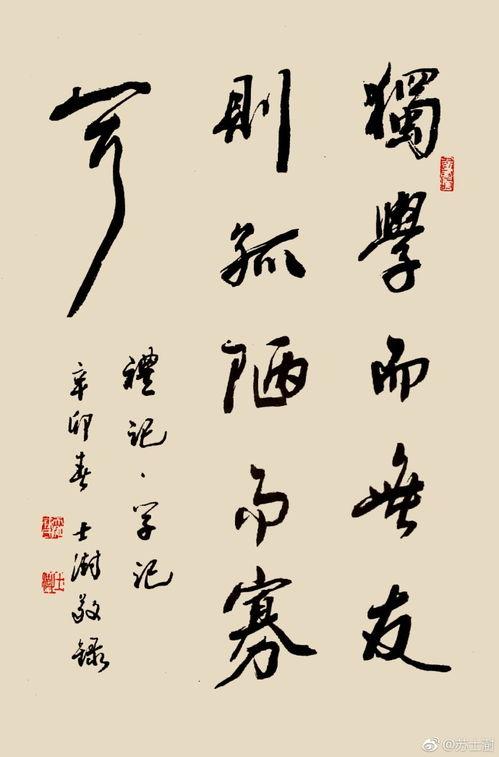 獨學而無友
則孤陋而寡
聞
禮記·学記
辛卯春 士澍敬錄
@苏士澍